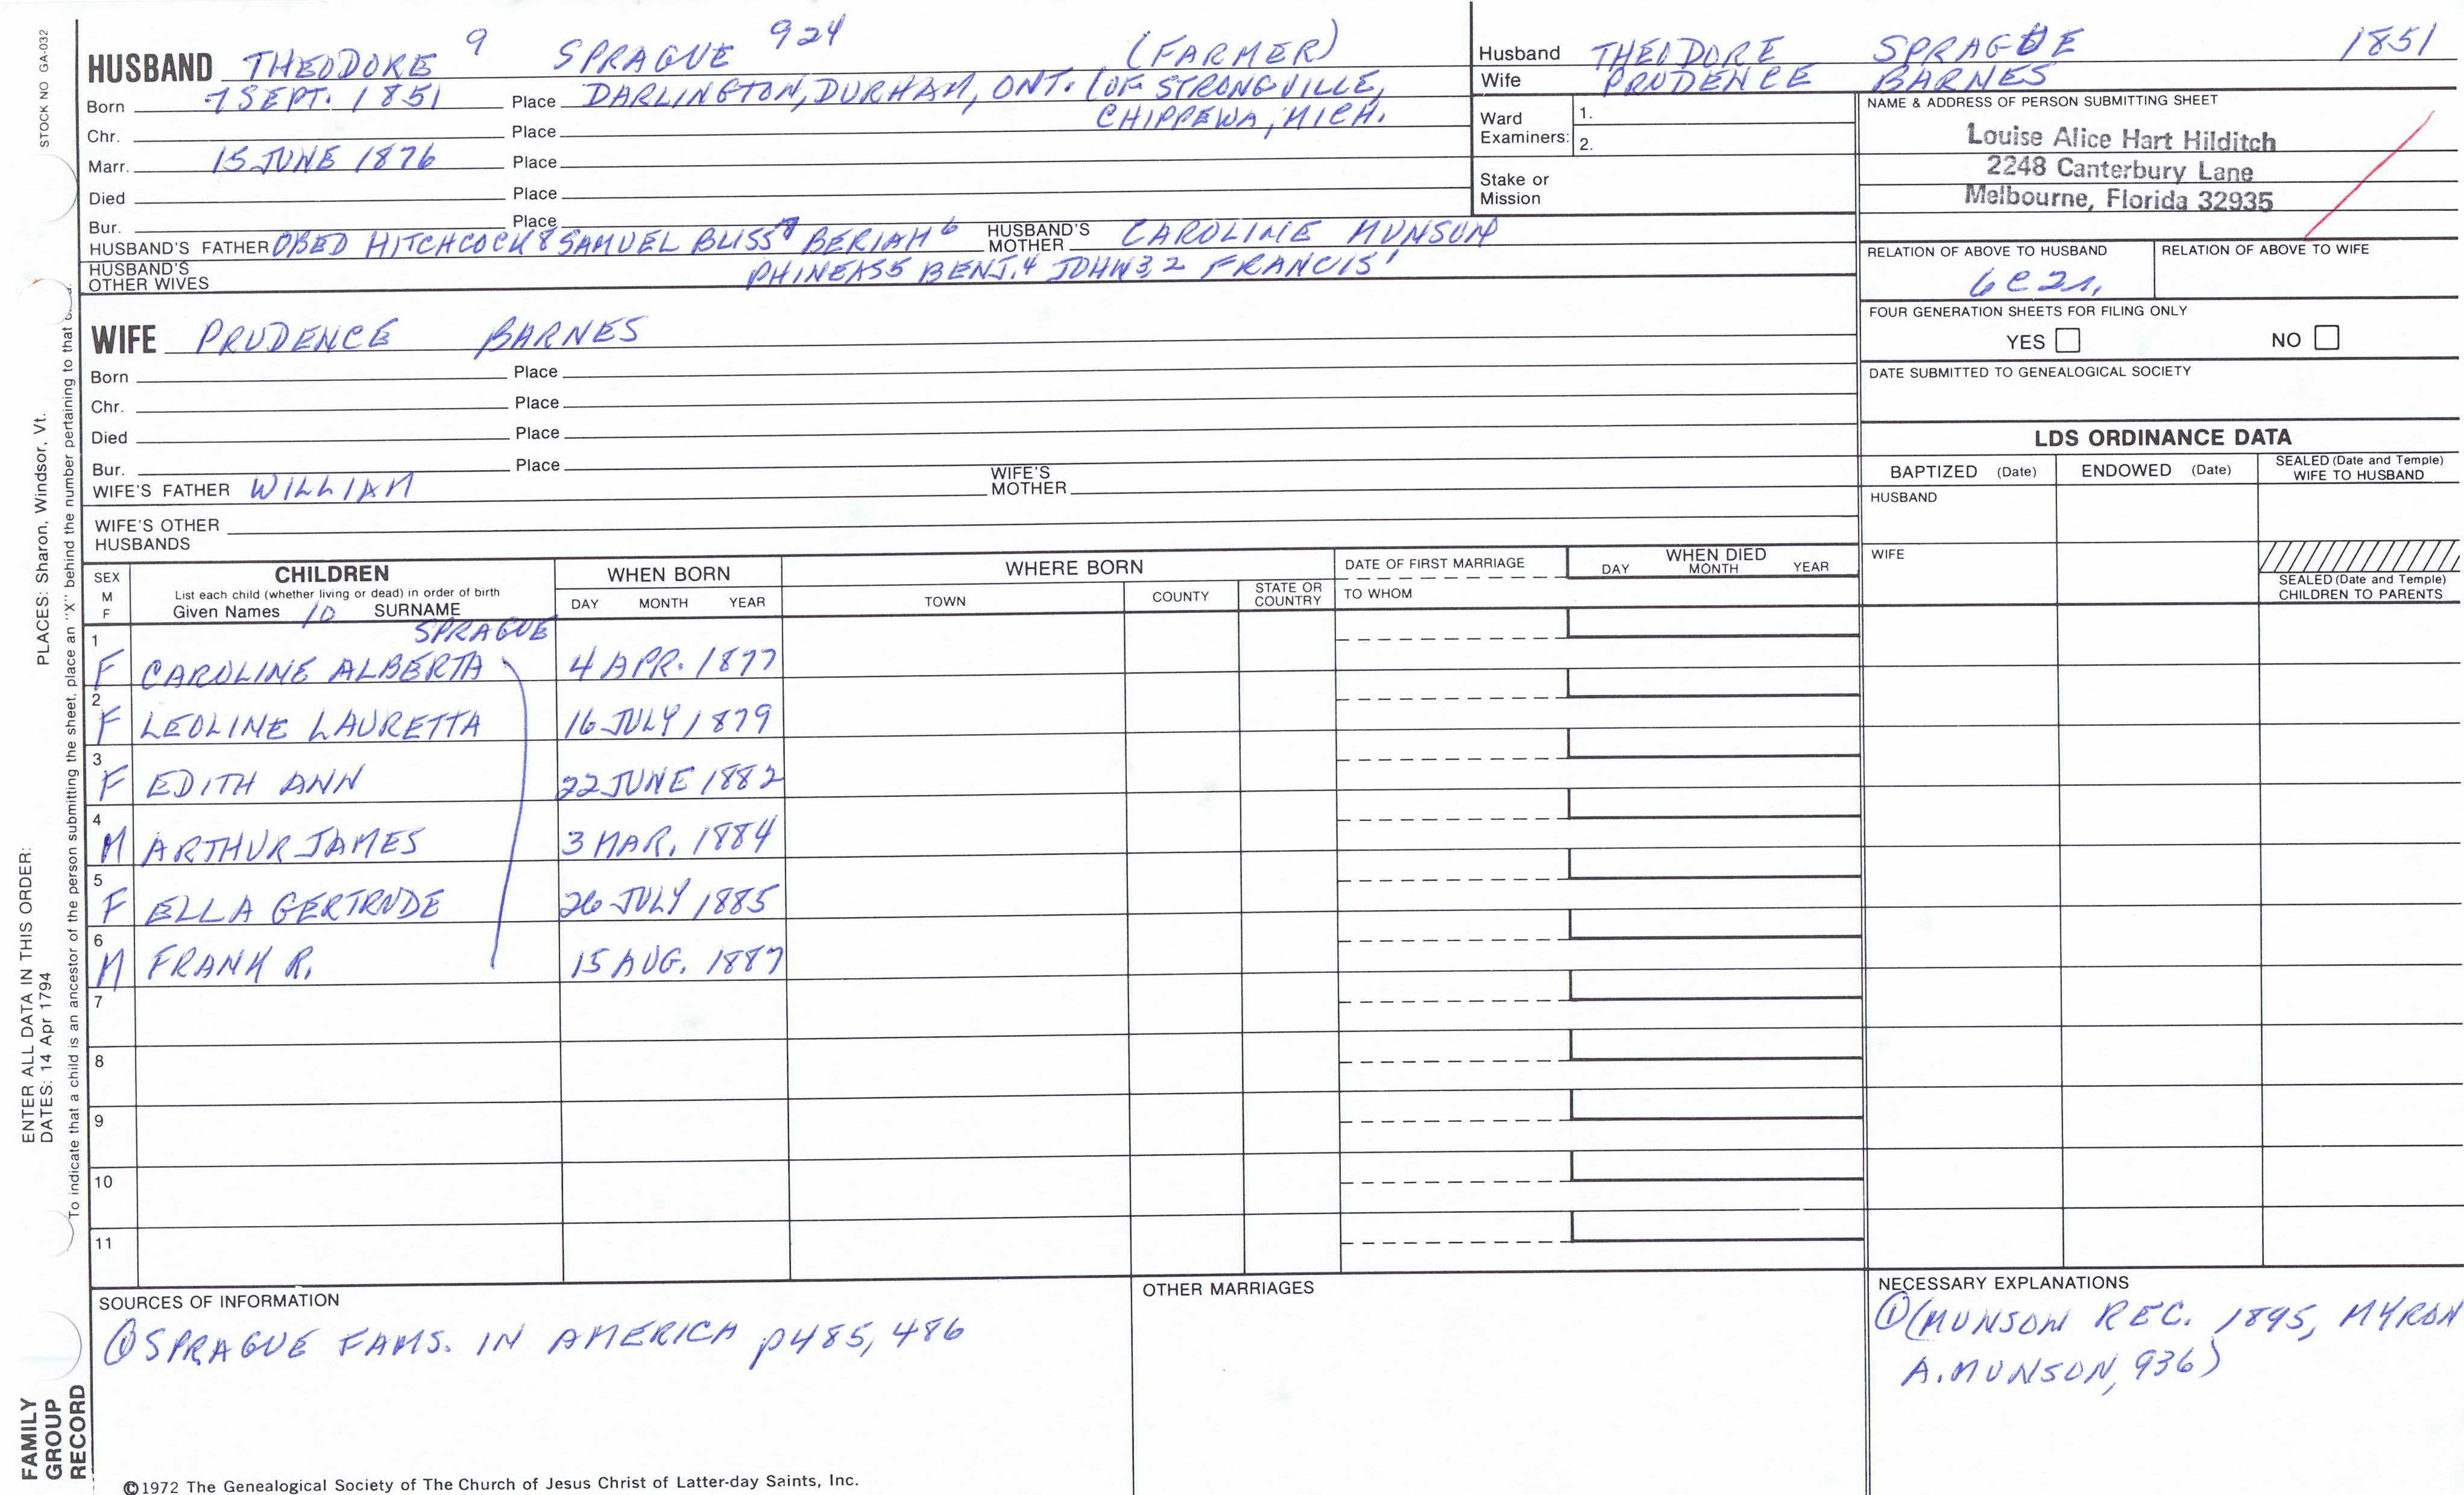 STOCK NO GA-032
HUSBAND THEODORE 9 SPRAGUE 924 (FARMER)
Born 7 SEPT. 1851 Place DARLINGTON, DURHAM, ONT. (OF STRONGVILLE,
CHIPPEWA, MICH.
Chr. Place
Marr. 15 JUNE 1876 Place
Died Place
Bur. Place
HUSBAND'S FATHER OBED HITCHCOCK 8 SAMUEL BLISS 7 BERIAH 6 HUSBAND'S MOTHER CAROLINE MUNSON
HUSBAND'S OTHER WIVES PHINEAS 5 BENJ. 4 JOHN 3, 2 FRANCIS 1
Husband THEODORE SPRAGUE 1851
Wife PRUDENCE BARNES
Ward Examiners: 1.
2.
Stake or Mission
NAME & ADDRESS OF PERSON SUBMITTING SHEET
Louise Alice Hart Hilditch
2248 Canterbury Lane
Melbourne, Florida 32935
RELATION OF ABOVE TO HUSBAND RELATION OF ABOVE TO WIFE
6C2r.
FOUR GENERATION SHEETS FOR FILING ONLY
YES NO
DATE SUBMITTED TO GENEALOGICAL SOCIETY
WIFE PRUDENCE BARNES
Born Place
Chr. Place
Died Place
Bur. Place
WIFE'S FATHER WILLIAM WIFE'S MOTHER
WIFE'S OTHER HUSBANDS
LDS ORDINANCE DATA
BAPTIZED (Date) ENDOWED (Date) SEALED (Date and Temple) WIFE TO HUSBAND
HUSBAND
WIFE
SEALED (Date and Temple) CHILDREN TO PARENTS
SEX M F
CHILDREN
List each child (whether living or dead) in order of birth
Given Names 10 SURNAME
WHEN BORN
DAY MONTH YEAR
WHERE BORN
TOWN COUNTY STATE OR COUNTRY
DATE OF FIRST MARRIAGE
TO WHOM
WHEN DIED
DAY MONTH YEAR
SPRAGUE
1 F CAROLINE ALBERTA 4 APR. 1877
2 F LEOLINE LAURETTA 16 JULY 1879
3 F EDITH ANN 22 JUNE 1882
4 M ARTHUR JAMES 3 MAR. 1884
5 F ELLA GERTRUDE 26 JULY 1885
6 M FRANK R. 15 AUG. 1887
7
8
9
10
11
SOURCES OF INFORMATION
① SPRAGUE FAMS. IN AMERICA p485, 486
OTHER MARRIAGES
NECESSARY EXPLANATIONS
① (MUNSON REC. 1895, MYRON
A. MUNSON, 936)
©1972 The Genealogical Society of The Church of Jesus Christ of Latter-day Saints, Inc.
FAMILY
GROUP
RECORD
ENTER ALL DATA IN THIS ORDER:
DATES: 14 Apr 1794 PLACES: Sharon, Windsor, Vt.
To indicate that a child is an ancestor of the person submitting the sheet, place an "X" behind the number pertaining to that